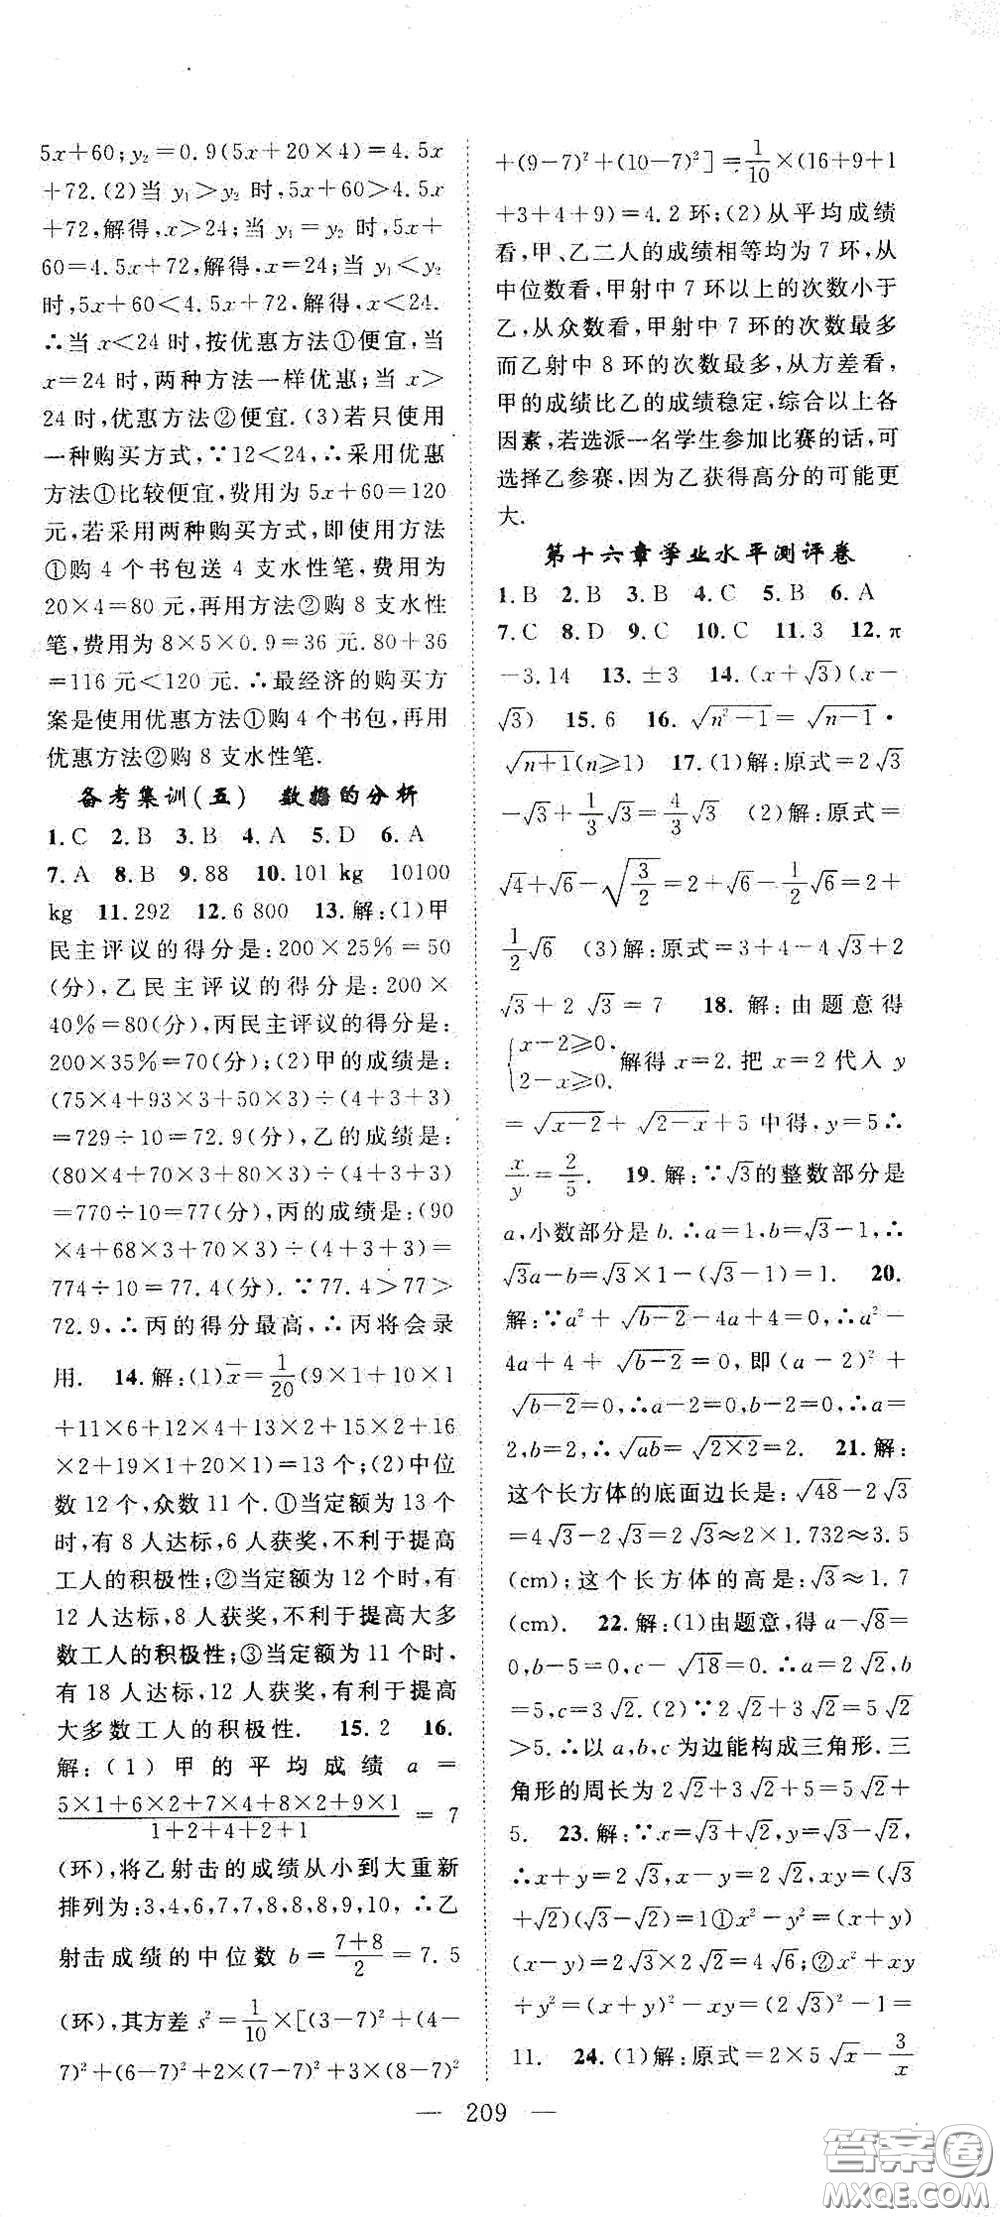 5x+60;y₂=0.9(5x+20×4)=4.5x
+72.(2)当 y₁>y₂ 时,5x+60>4.5x
+72,解得,x>24;当 y₁=y₂ 时,5x+
60=4.5x+72,解得,x=24;当 y₁<y₂
时,5x+60<4.5x+72,解得,x<24.
∴当 x<24 时,按优惠方法①便宜,当
x=24 时,两种方法一样优惠;当 x>
24 时,优惠方法②便宜.(3)若只使用
一种购买方式,∵12<24,∴采用优惠
方法①比较便宜,费用为 5x+60=120
元,若采用两种购买方式,即使用方法
①购 4 个书包送 4 支水性笔,费用为
20×4=80 元,再用方法②购 8 支水性
笔,费用为 8×5×0.9=36 元.80+36
=116 元<120 元.∴最经济的购买方
案是使用优惠方法①购 4 个书包,再用
优惠方法②购 8 支水性笔.
备考集训(五) 数据的分析
1.C 2.B 3.B 4.A 5.D 6.A
7.A 8.B 9.88 10.101 kg 10100
kg 11.292 12.6 800 13.解:(1)甲
民主评议的得分是:200×25%=50
(分),乙民主评议的得分是:200×
40%=80(分),丙民主评议的得分是:
200×35%=70(分);(2)甲的成绩是:
(75×4+93×3+50×3)÷(4+3+3)
=729÷10=72.9(分),乙的成绩是:
(80×4+70×3+80×3)÷(4+3+3)
=770÷10=77(分),丙的成绩是:(90
×4+68×3+70×3)÷(4+3+3)=
774÷10=77.4(分).∵77.4>77>
72.9,∴丙的得分最高,∴丙将会录
用. 14.解:(1)x̄=1/20(9×1+10×1
+11×6+12×4+13×2+15×2+16
×2+19×1+20×1)=13 个;(2)中位
数 12 个,众数 11 个.①当定额为 13 个
时,有 8 人达标,6 人获奖,不利于提高
工人的积极性;②当定额为 12 个时,有
12 人达标,8 人获奖,不利于提高大多
数工人的积极性;③当定额为 11 个时,
有 18 人达标,12 人获奖,有利于提高
大多数工人的积极性. 15.2 16.
解:(1)甲的平均成绩 a=
(5×1+6×2+7×4+8×2+9×1)/(1+2+4+2+1)=7
(环),将乙射击的成绩从小到大重新
排列为:3,4,6,7,7,8,8,8,9,10,∴乙
射击成绩的中位数 b=(7+8)/2=7.5
(环),其方差 s²=1/10×[(3-7)²+(4-
7)²+(6-7)²+2×(7-7)²+3×(8-7)²
+(9-7)²+(10-7)²]=1/10×(16+9+1
+3+4+9)=4.2 环;(2)从平均成绩
看,甲、乙二人的成绩相等均为 7 环,从
中位数看,甲射中 7 环以上的次数小于
乙,从众数看,甲射中 7 环的次数最多
而乙射中 8 环的次数最多,从方差看,
甲的成绩比乙的成绩稳定,综合以上各
因素,若选派一名学生参加比赛的话,可
选择乙参赛,因为乙获得高分的可能更
大.
第十六章学业水平测评卷
1.B 2.B 3.B 4.C 5.B 6.A
7.C 8.D 9.C 10.C 11.3 12.π
-3.14 13.±3 14.(x+√3)(x-
√3) 15.6 16.√(n²-1)=√(n-1)·
√(n+1)(n≥1) 17.(1)解:原式=2√3
-√3+1/3√3=4/3√3 (2)解:原式=
√4+√6-√(3/2)=2+√6-1/2√6=2+
1/2√6 (3)解:原式=3+4-4√3+2
√3+2√3=7 18.解:由题意得
{x-2≥0, 2-x≥0. 解得 x=2.把 x=2 代入 y
=√(x-2)+√(2-x)+5 中得,y=5∴
x/y=2/5. 19.解:∵√3的整数部分是
a,小数部分是 b.∴a=1,b=√3-1,∴
√3a-b=√3×1-(√3-1)=1. 20.
解:∵a²+√(b-2)-4a+4=0,∴a²-
4a+4+√(b-2)=0,即(a-2)²+
√(b-2)=0,∴a-2=0,b-2=0,∴a=
2,b=2,∴√(ab)=√(2×2)=2. 21.解:
这个长方体的底面边长是:√48-2√3
=4√3-2√3=2√3≈2×1.732≈3.5
(cm);这个长方体的高是:√3≈1.7
(cm). 22.解:(1)由题意,得 a-√8=
0,b-5=0,c-√18=0.∴a=2√2,b
=5,c=3√2.(2)∵2√2+3√2=5√2
>5.∴以 a,b,c 为边能构成三角形.三
角形的周长为 2√2+3√2+5=5√2+
5. 23.解:∵x=√3+√2,y=√3-√2,
∴x+y=2√3,x-y=2√2,xy=(√3
+√2)(√3-√2)=1①x²-y²=(x+y)
(x-y)=2√3×2√2=4√6;②x²+xy
+y²=(x+y)²-xy=(2√3)²-1=
11. 24.(1)解:原式=2×5√x-3/x
— 209 —
答案圈
MXQE.COM